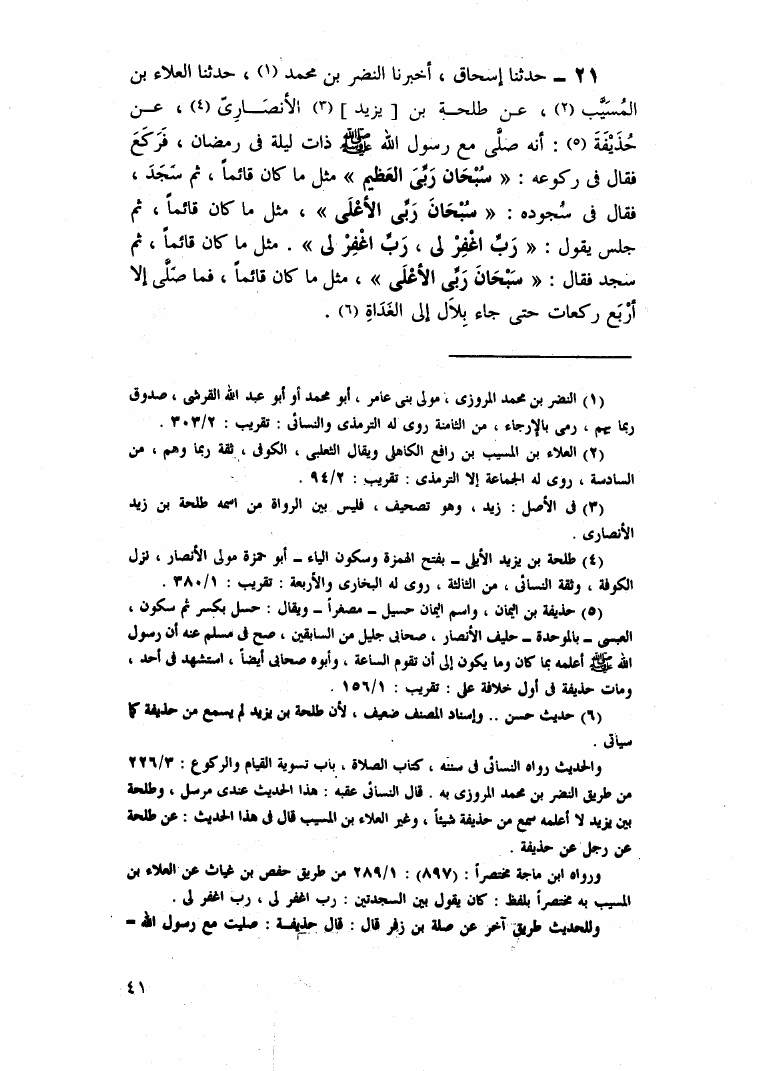 ٢١ ــ حدثنا إسحاق ، أخبرنا النضر بن محمد (١) ، حدثنا العلاء بن
المُسَيَّب (٢) ، عـن طلحـة بن [ يزيد ] (٣) الأنصَـارِىّ (٤) ، عـن
حُذَيْفَةَ (٥) : أنه صلَّى مع رسول الله ﷺ ذات ليلة فى رمضان ، فَرَكَعَ
فقال فى ركوعه : « سُبْحَان رَبِّىَ العَظيم » مثل ما كان قائماً ، ثم سَجَدَ ،
فقال فى سُجوده : « سُبْحَانَ رَبِّى الأعْلَى » ، مثل ما كان قائماً ، ثم
جلس يقول : « رَبِّ اغْفِرْ لى ، رَبِّ اغْفِرْ لى » . مثل ما كان قائماً ، ثم
سجد فقال : « سَبْحَانَ رَبِّى الأعْلَى » ، مثل ما كان قائماً ، فما صَلَّى إلا
أرْبَع ركعات حتى جاء بِلاَل إلى الغَدَاةِ (٦) .
(١) النضر بن محمد المروزى ، مولى بنى عامر ، أبو محمد أو أبو عبد الله القرشى ، صدوق
ربما يهم ، رمى بالإرجاء ، من الثامنة روى له الترمذى والنسائى : تقريب : ٣٠٣/٢ .
(٢) العلاء بن المسيب بن رافع الكاهلى ويقال الثعلبى ، الكوفى ، ثقة ربما وهم ، من
السادسة ، روى له الجماعة إلا الترمذى : تقريب : ٩٤/٢ .
(٣) فى الأصل : زيد ، وهو تصحيف ، فليس بين الرواة من اسمه طلحة بن زيد
الأنصارى .
(٤) طلحة بن يزيد الأيلى ــ بفتح الهمزة وسكون الياء ــ أبو حمزة مولى الأنصار ، نزل
الكوفة ، وثقة النسائى ، من الثالثة ، روى له البخارى والأربعة : تقريب : ٣٨٠/١ .
(٥) حذيفة بن اليمان ، واسم اليمان حسيل ــ مصغراً ــ ويقال : حسل بكسر ثم سكون ،
العبسى ــ بالموحدة ــ حليف الأنصار ، صحابى جليل من السابقين ، صح فى مسلم عنه أن رسول
الله ﷺ أعلمه بما كان وما يكون إلى أن تقوم الساعة ، وأبوه صحابى أيضاً ، استشهد فى أحد ،
ومات حذيفة فى أول خلافة على : تقريب : ١٥٦/١ .
(٦) حديث حسن .. وإسناد المصنف ضعيف ، لأن طلحة بن يزيد لم يسمع من حذيفة كما
سيأتى .
والحديث رواه النسائى فى سننه ، كتاب الصلاة ، باب تسوية القيام والركوع : ٢٢٦/٣
من طريق النضر بن محمد المروزى به . قال النسائى عقبه : هذا الحديث عندى مرسل ، وطلحة
بين يزيد لا أعلمه سمع من حذيفة شيئاً ، وغير العلاء بن المسيب قال فى هذا الحديث : عن طلحة
عن رجل عن حذيفة .
ورواه ابن ماجة مختصراً : (٨٩٧) : ٢٨٩/١ من طريق حفص بن غياث عن العلاء بن
المسيب به مختصراً بلفظ : كان يقول بين السجدتين : رب اغفر لى ، رب اغفر لى .
وللحديث طريق آخر عن صلة بن زفر قال : قال حذيفـة : صليت مع رسول الله ــ
٤١